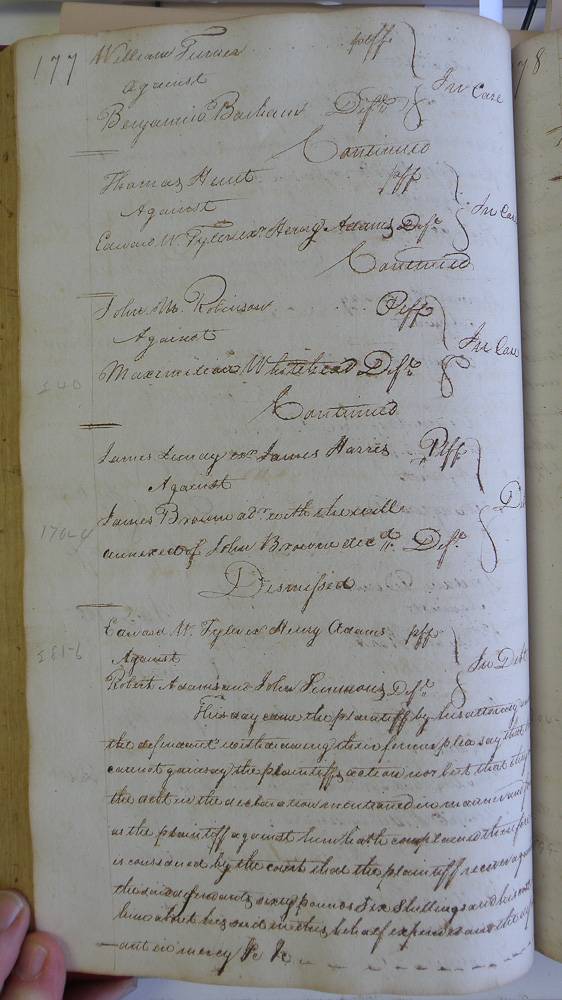 177 William Turner plff.
Against
Benjamin Deft. In Case
Continued
Thomas Hunt plff
Against
Edward W. Tyler exr. Henry Adams Deft. In Case
Continued
John M. Robinson Plff
Against
Maximilian Whitehead Deft. In Case
Continued
James exr James Harris Plff
Against
James Brown adr. with the will
annexed of John Brown decd. Deft. D
Dismissed
Edward W. Tyler ex Henry Adams plff
Against
Robert Adams and John Simmons Deft. In Debt
This day came the plaintiff by his attorney and
the defendant withdrawing their former plea say that
cannot gainsay the plaintiffs action nor but that they
the debt in the declaration mentioned in manner and
as the plaintiff against him hath complained therefore
is considered by the court that the plaintiff recover against
the said defendants sixty pounds Six Shillings and his costs
him about his suit in this behalf expended and the
ant in mercy &c
78